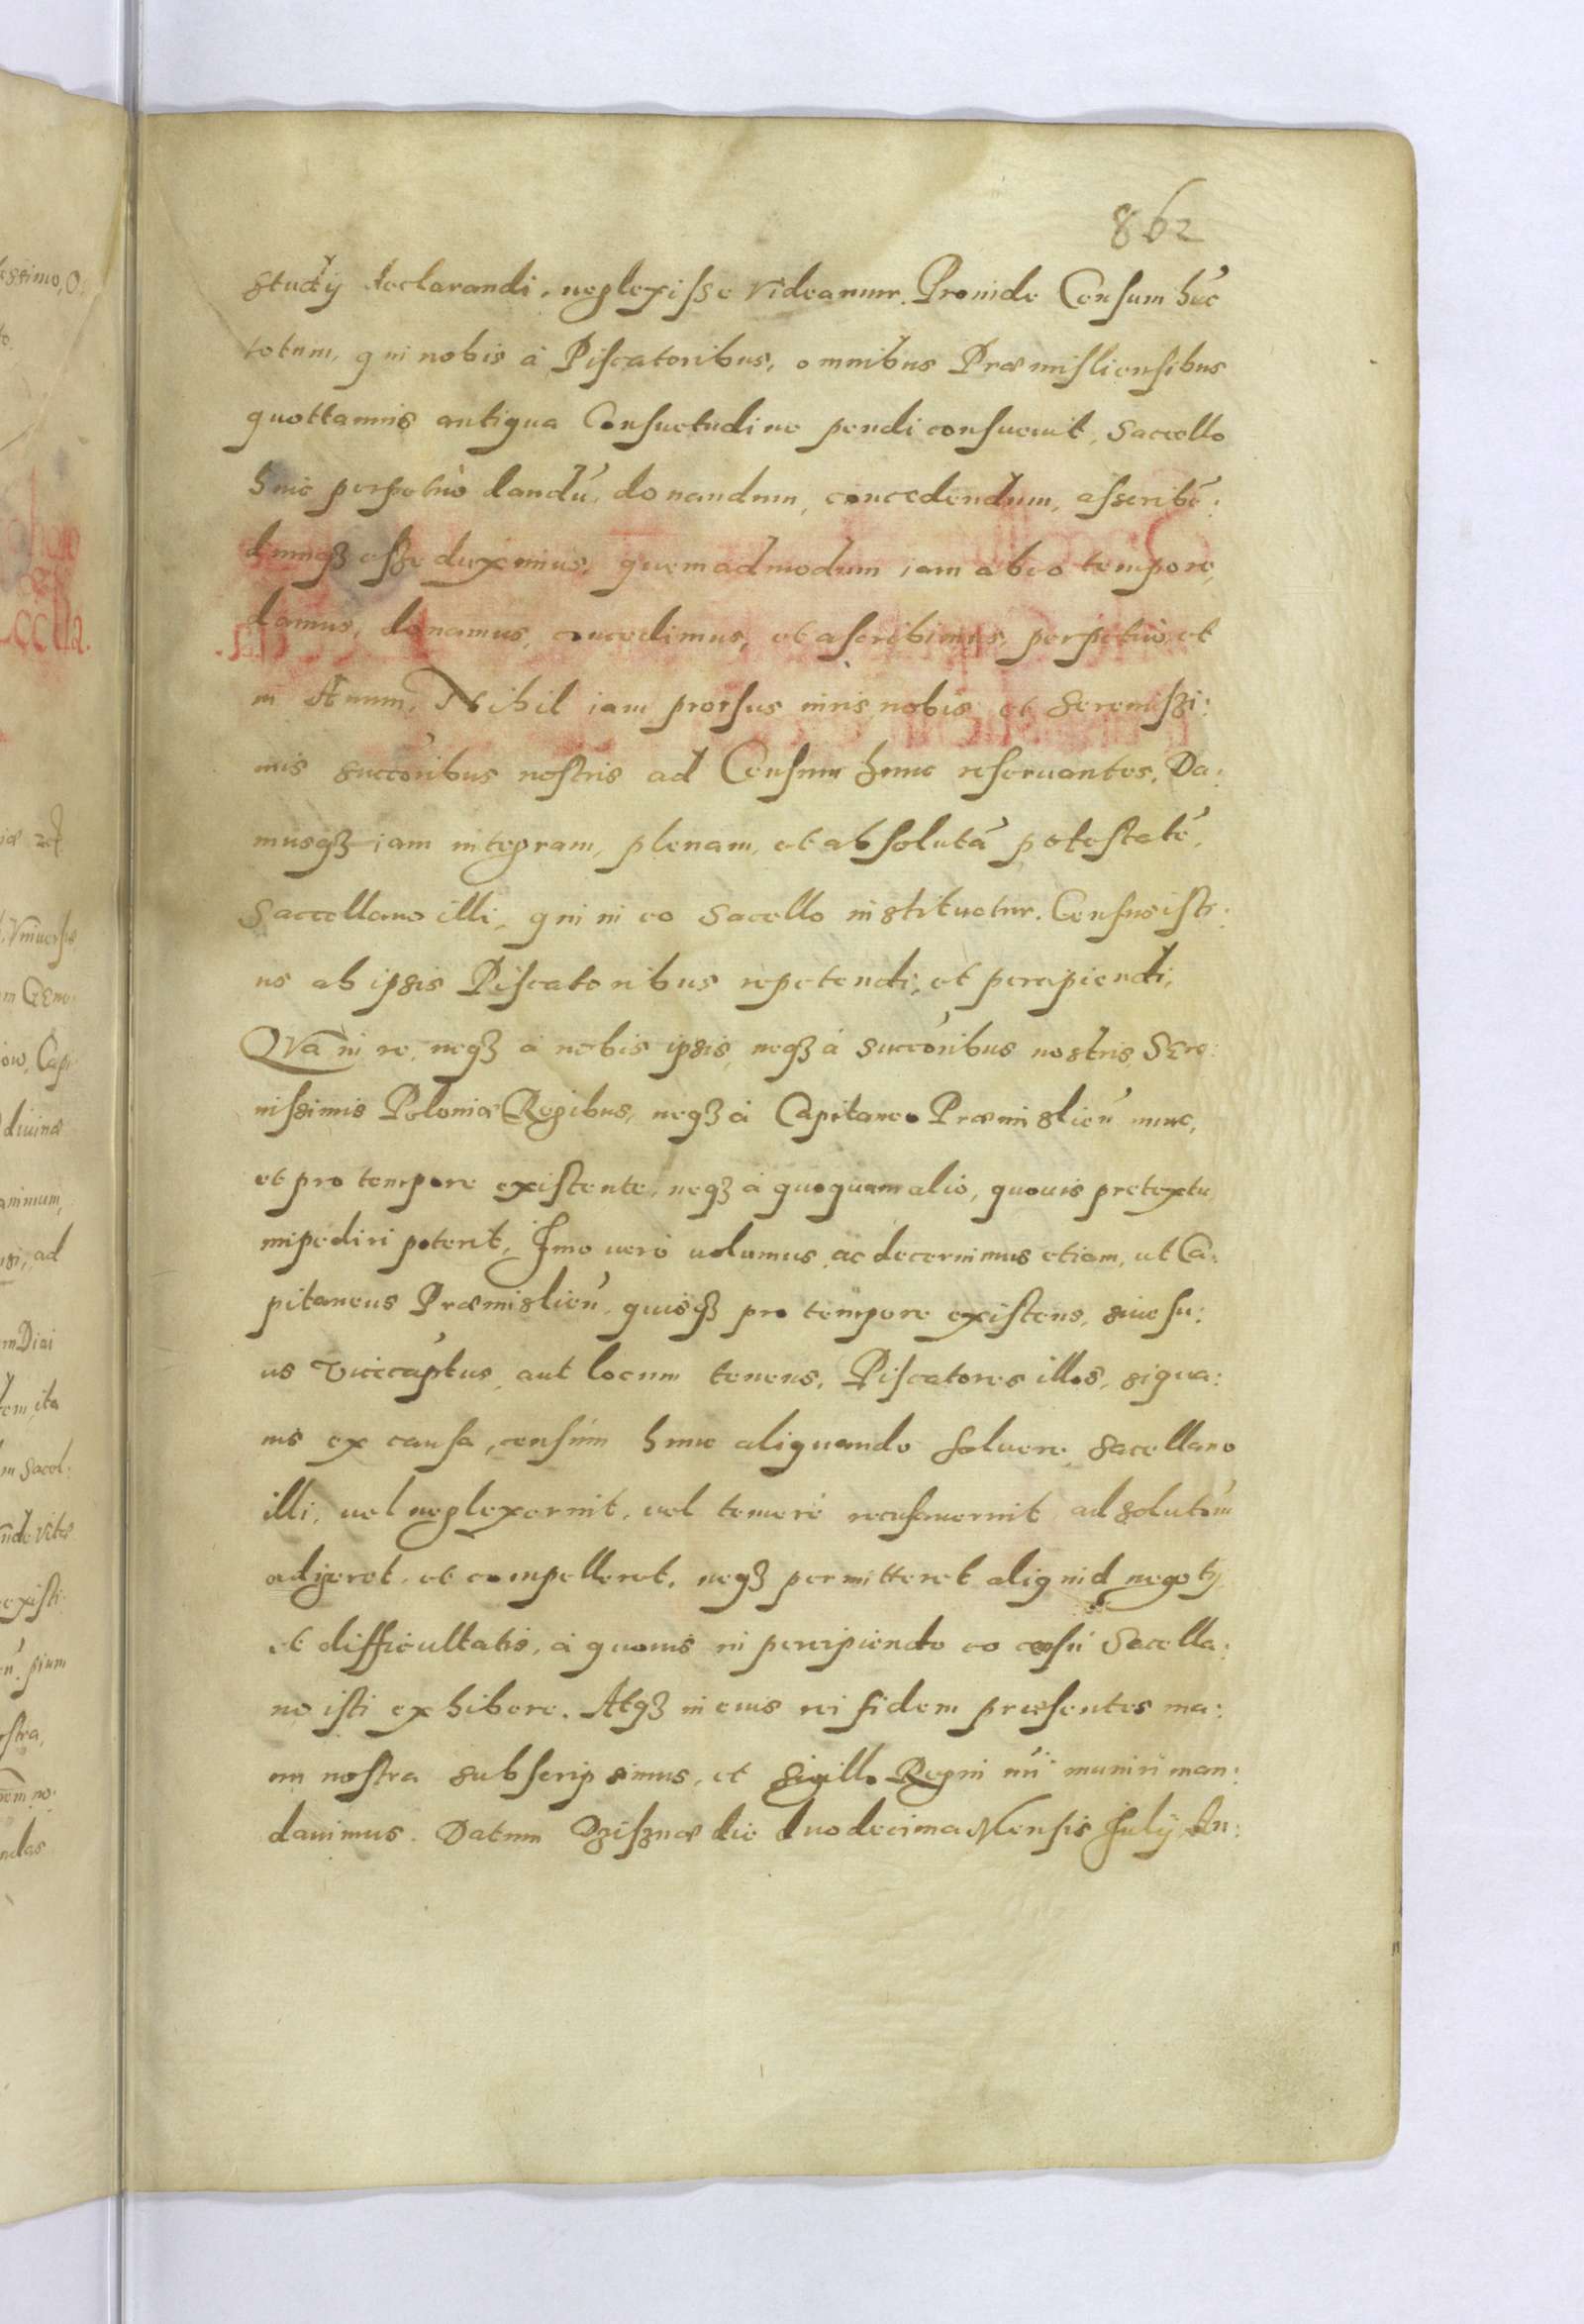 862
studij declarandi, neglexisse videamur. Proinde Censum hūc
totum, qui nobis à Piscatoribus, omnibus Præmisliensibus
quottannis antiqua Consuetudine pendi consuevit, Saccello
huic perpetuò dandū, donandum, concedendum, asscribē:
dumqȝ esse duximus, quemadmodum iam ab eo tempore,
damus, donamus, concedimus, et ascribimus, perpetuò et
in Æuum, Nihil iam prorsus iuris nobis et Serenissi:
mis succōribus nostris ad Censum hunc reseruantes. Da:
musqȝ iam integram, plenam, et absolutā potestatē,
Saccellano illi, qui in eo Sacello instituetur. Census isti:
us ab ipsis Piscatoribus repetendi, et percipiendi,
Qva in re, neqȝ à nobis ipsis, neqȝ à succōribus nostris, Sere:
nissimis Poloniæ Regibus, neqȝ à Capitaneo Præmislień nunc,
et pro tempore existente, neqȝ à quoquam alio, quouis pretextu,
impediri poterit, Imo uerò uolumus, ac decernimus etiam, ut Ca:
pitaneus Præmislień, quisqȝ pro tempore existens, siue su:
us Vicecaptus, aut locum tenens, Piscatores illos, siqua:
uis ex causa, censum hunc aliquando soluere, sacellano
illi, uel neglexerint, uel temerè recusauerint, ad solutōm
adigeret, et compelleret, neqȝ permitteret aliquid negotij
et difficultatis, à quouis in percipiendo eo censū Sacella:
no isti exhibere. Atqȝ in eius rei fidem præsentes ma:
nu nostra subscripsimus, et sigillo Regni nr̃i muniri man:
dauimus. Datum Dzisznæ die duodecima Mensis Julij, An: